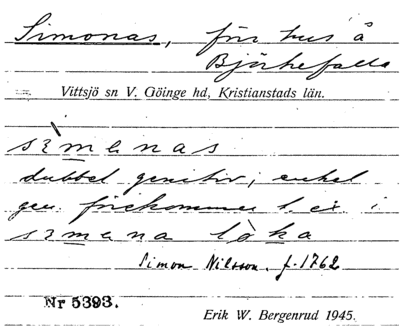 Simonas, förr hus å
Björkefalla
Vittsjö sn V. Göinge hd, Kristianstads län.
sìmanas
dubbel genitiv; enkel
gen. förekommer t. ex. i
sìmana löka
Simon Nilsson f. 1762
Nr 5393.
Erik W. Bergenrud 1945.